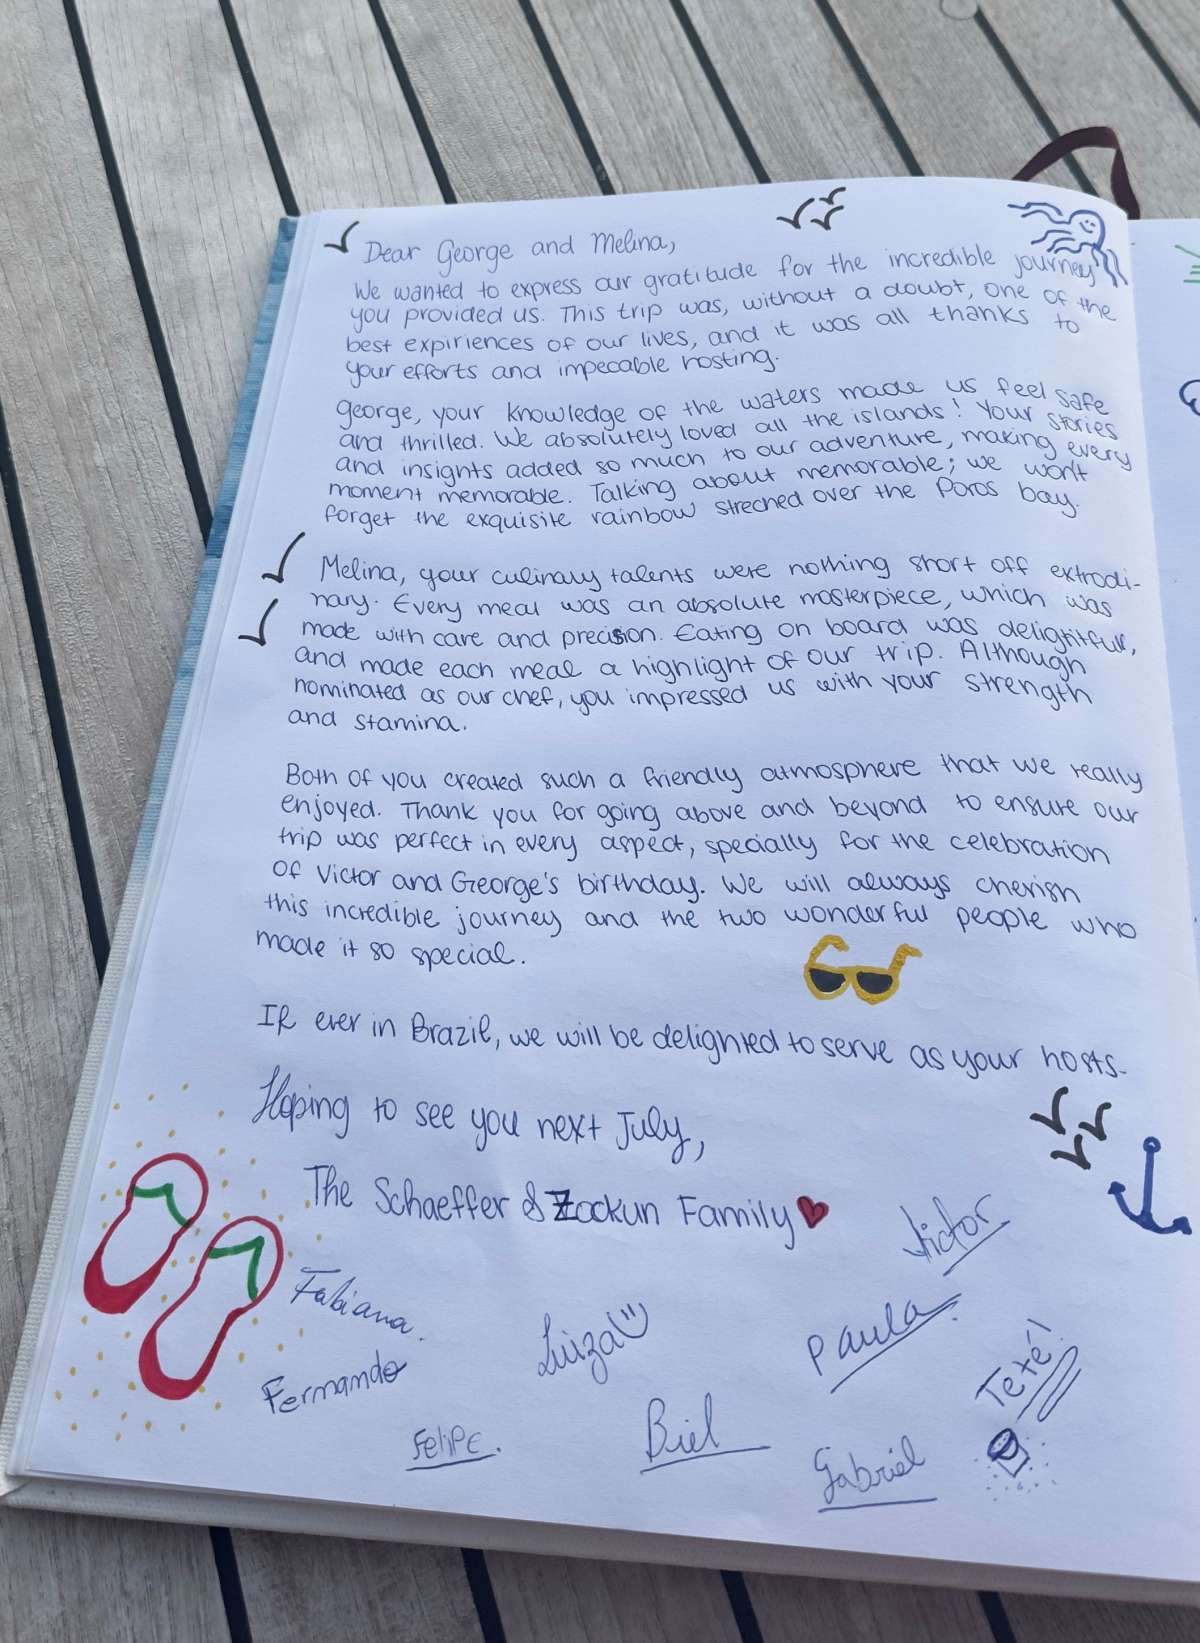 Dear George and Melina,
We wanted to express our gratitude for the incredible journey
you provided us. This trip was, without a doubt, one of the
best expiriences of our lives, and it was all thanks to
your efforts and impecable hosting.
George, your knowledge of the waters made us feel safe
and thrilled. We absolutely loved all the islands! Your stories
and insights added so much to our adventure, making every
moment memorable. Talking about memorable; we won't
forget the exquisite rainbow streched over the Poros bay.
Melina, your culinary talents were nothing short off extrodi-
nary. Every meal was an absolute masterpiece, which was
made with care and precision. Eating on board was delightful,
and made each meal a highlight of our trip. Although
nominated as our chef, you impressed us with your strength
and stamina.
Both of you created such a friendly atmosphere that we really
enjoyed. Thank you for going above and beyond to ensure our
trip was perfect in every aspect, specially for the celebration
of Victor and George's birthday. We will always cherish
this incredible journey and the two wonderful people who
made it so special.
If ever in Brazil, we will be delighted to serve as your hosts.
Hoping to see you next July,
The Schaeffer & Zockun Family
Victor
Fabiana.
Luiza
Paula
Teté!
Fernando
Felipe.
Biel
Gabriel